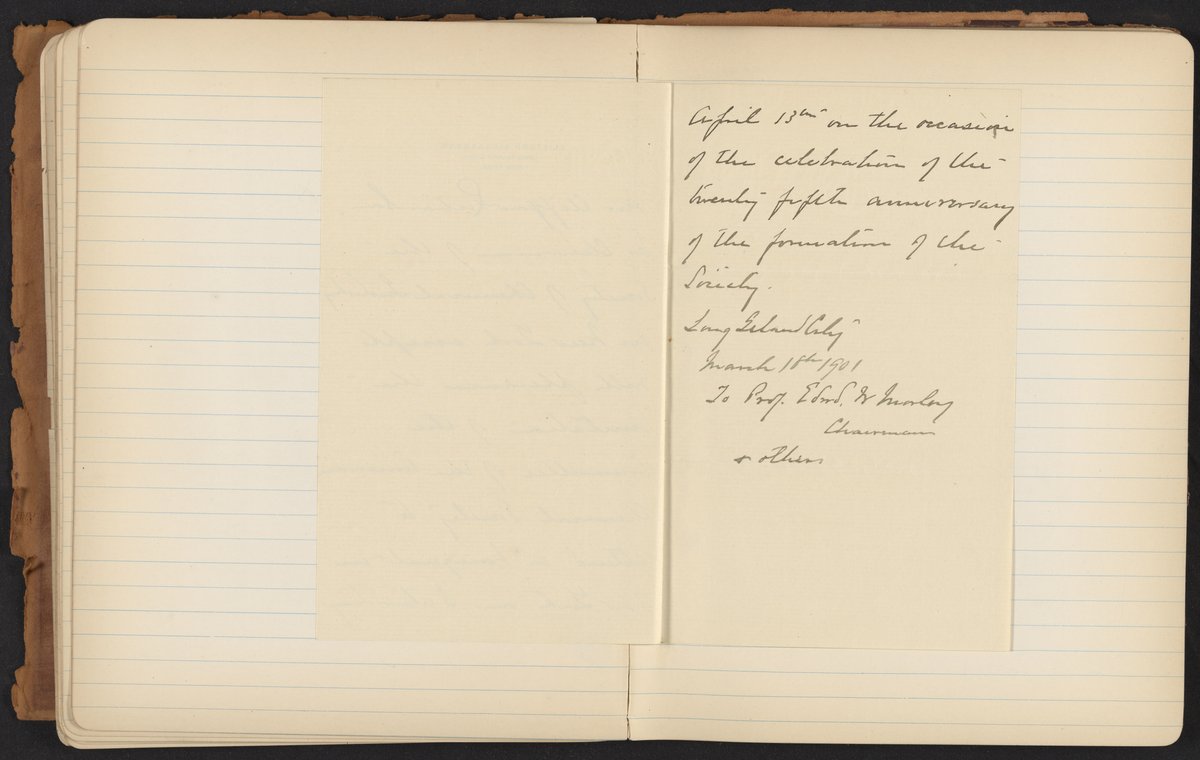 April 13th on the occasion
of the celebration of the
twenty fifth anniversary
of the formation of the
Society.
Long Island City
March 18th 1901
To Prof. Edwd. W Morley
Chairman
& others